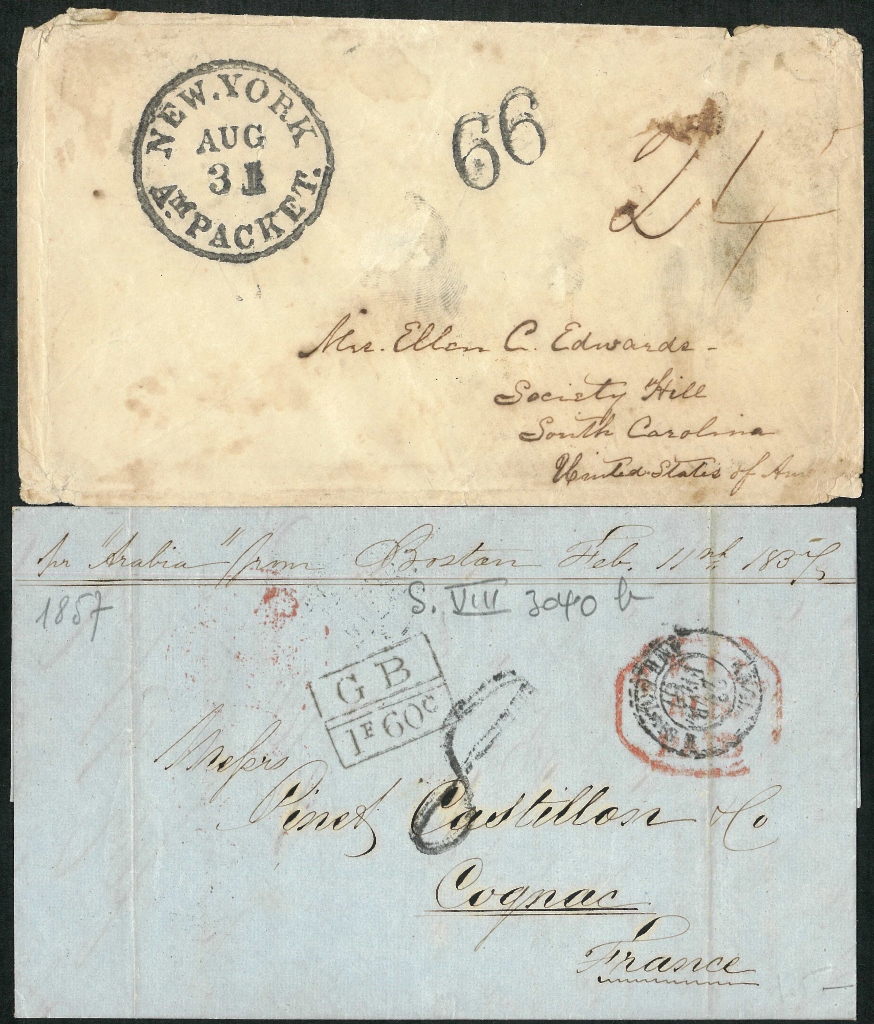 NEW.YORK
AUG
31
AM. PACKET.
66
24
Mrs. Ellen C. Edwards-
Society Hill
South Carolina
United States of Am
pr "Arabia" from Boston Feb. 11th 1857
1857
S. VIII 3040 b
G B
1F 60c
8
Messrs
Pinet Castillon & Co
Cognac
France